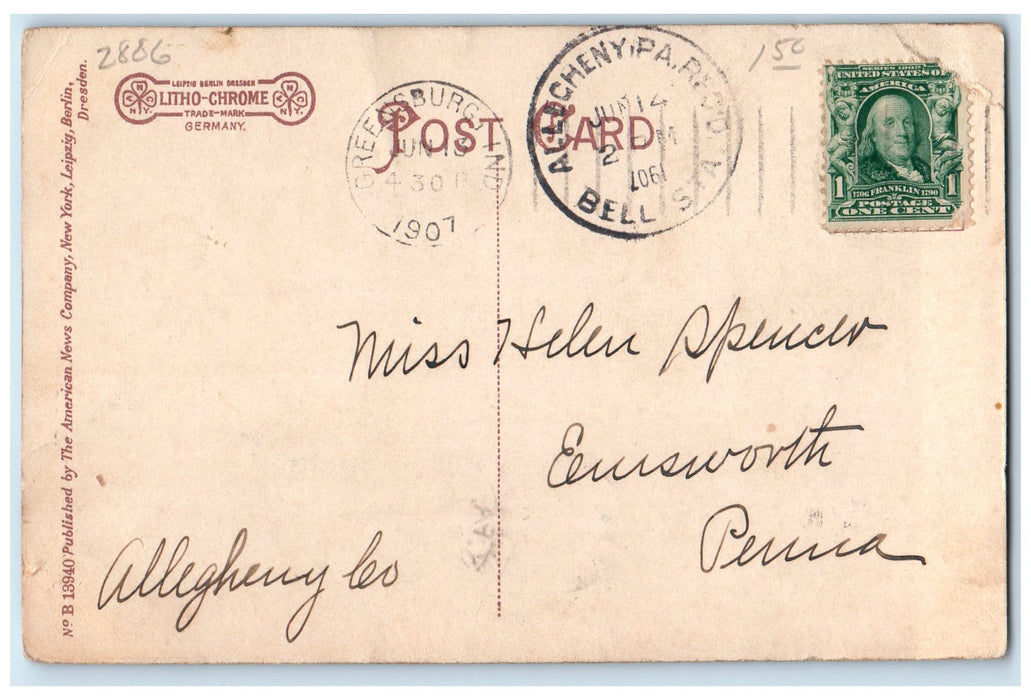 2886
1 50
LEIPZIG BERLIN DRESDEN
LITHO-CHROME
TRADE-MARK
GERMANY.
ANC
N.Y.
ANC
N.Y.
POST CARD
GREENSBURG, IND
JUN 13
4 30 P
1907
ALLEGHENY, PA. REC'D
JUN 14
2 M
1907
BELL. STA.
SERIES 1902
UNITED STATES OF
AMERICA
1706 FRANKLIN 1790
1 POSTAGE 1
ONE CENT
Miss Helen Spencer
Emsworth
Penna
Allegheny Co
No B 13940 Published by The American News Company, New York, Leipzig, Berlin,
Dresden.